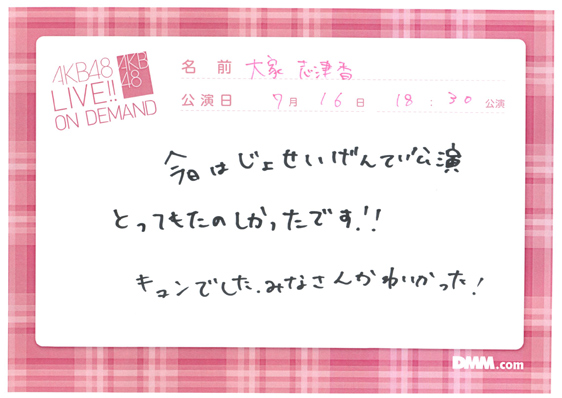 AKB48
LIVE!!
ON DEMAND
AKB
48
名 前 大家 志津香
公演日 7月 16日 18:30 公演
今日はじょせいげんてい公演
とってもたのしかったです!!
キュンでした.みなさんかわいかった!
DMM.com